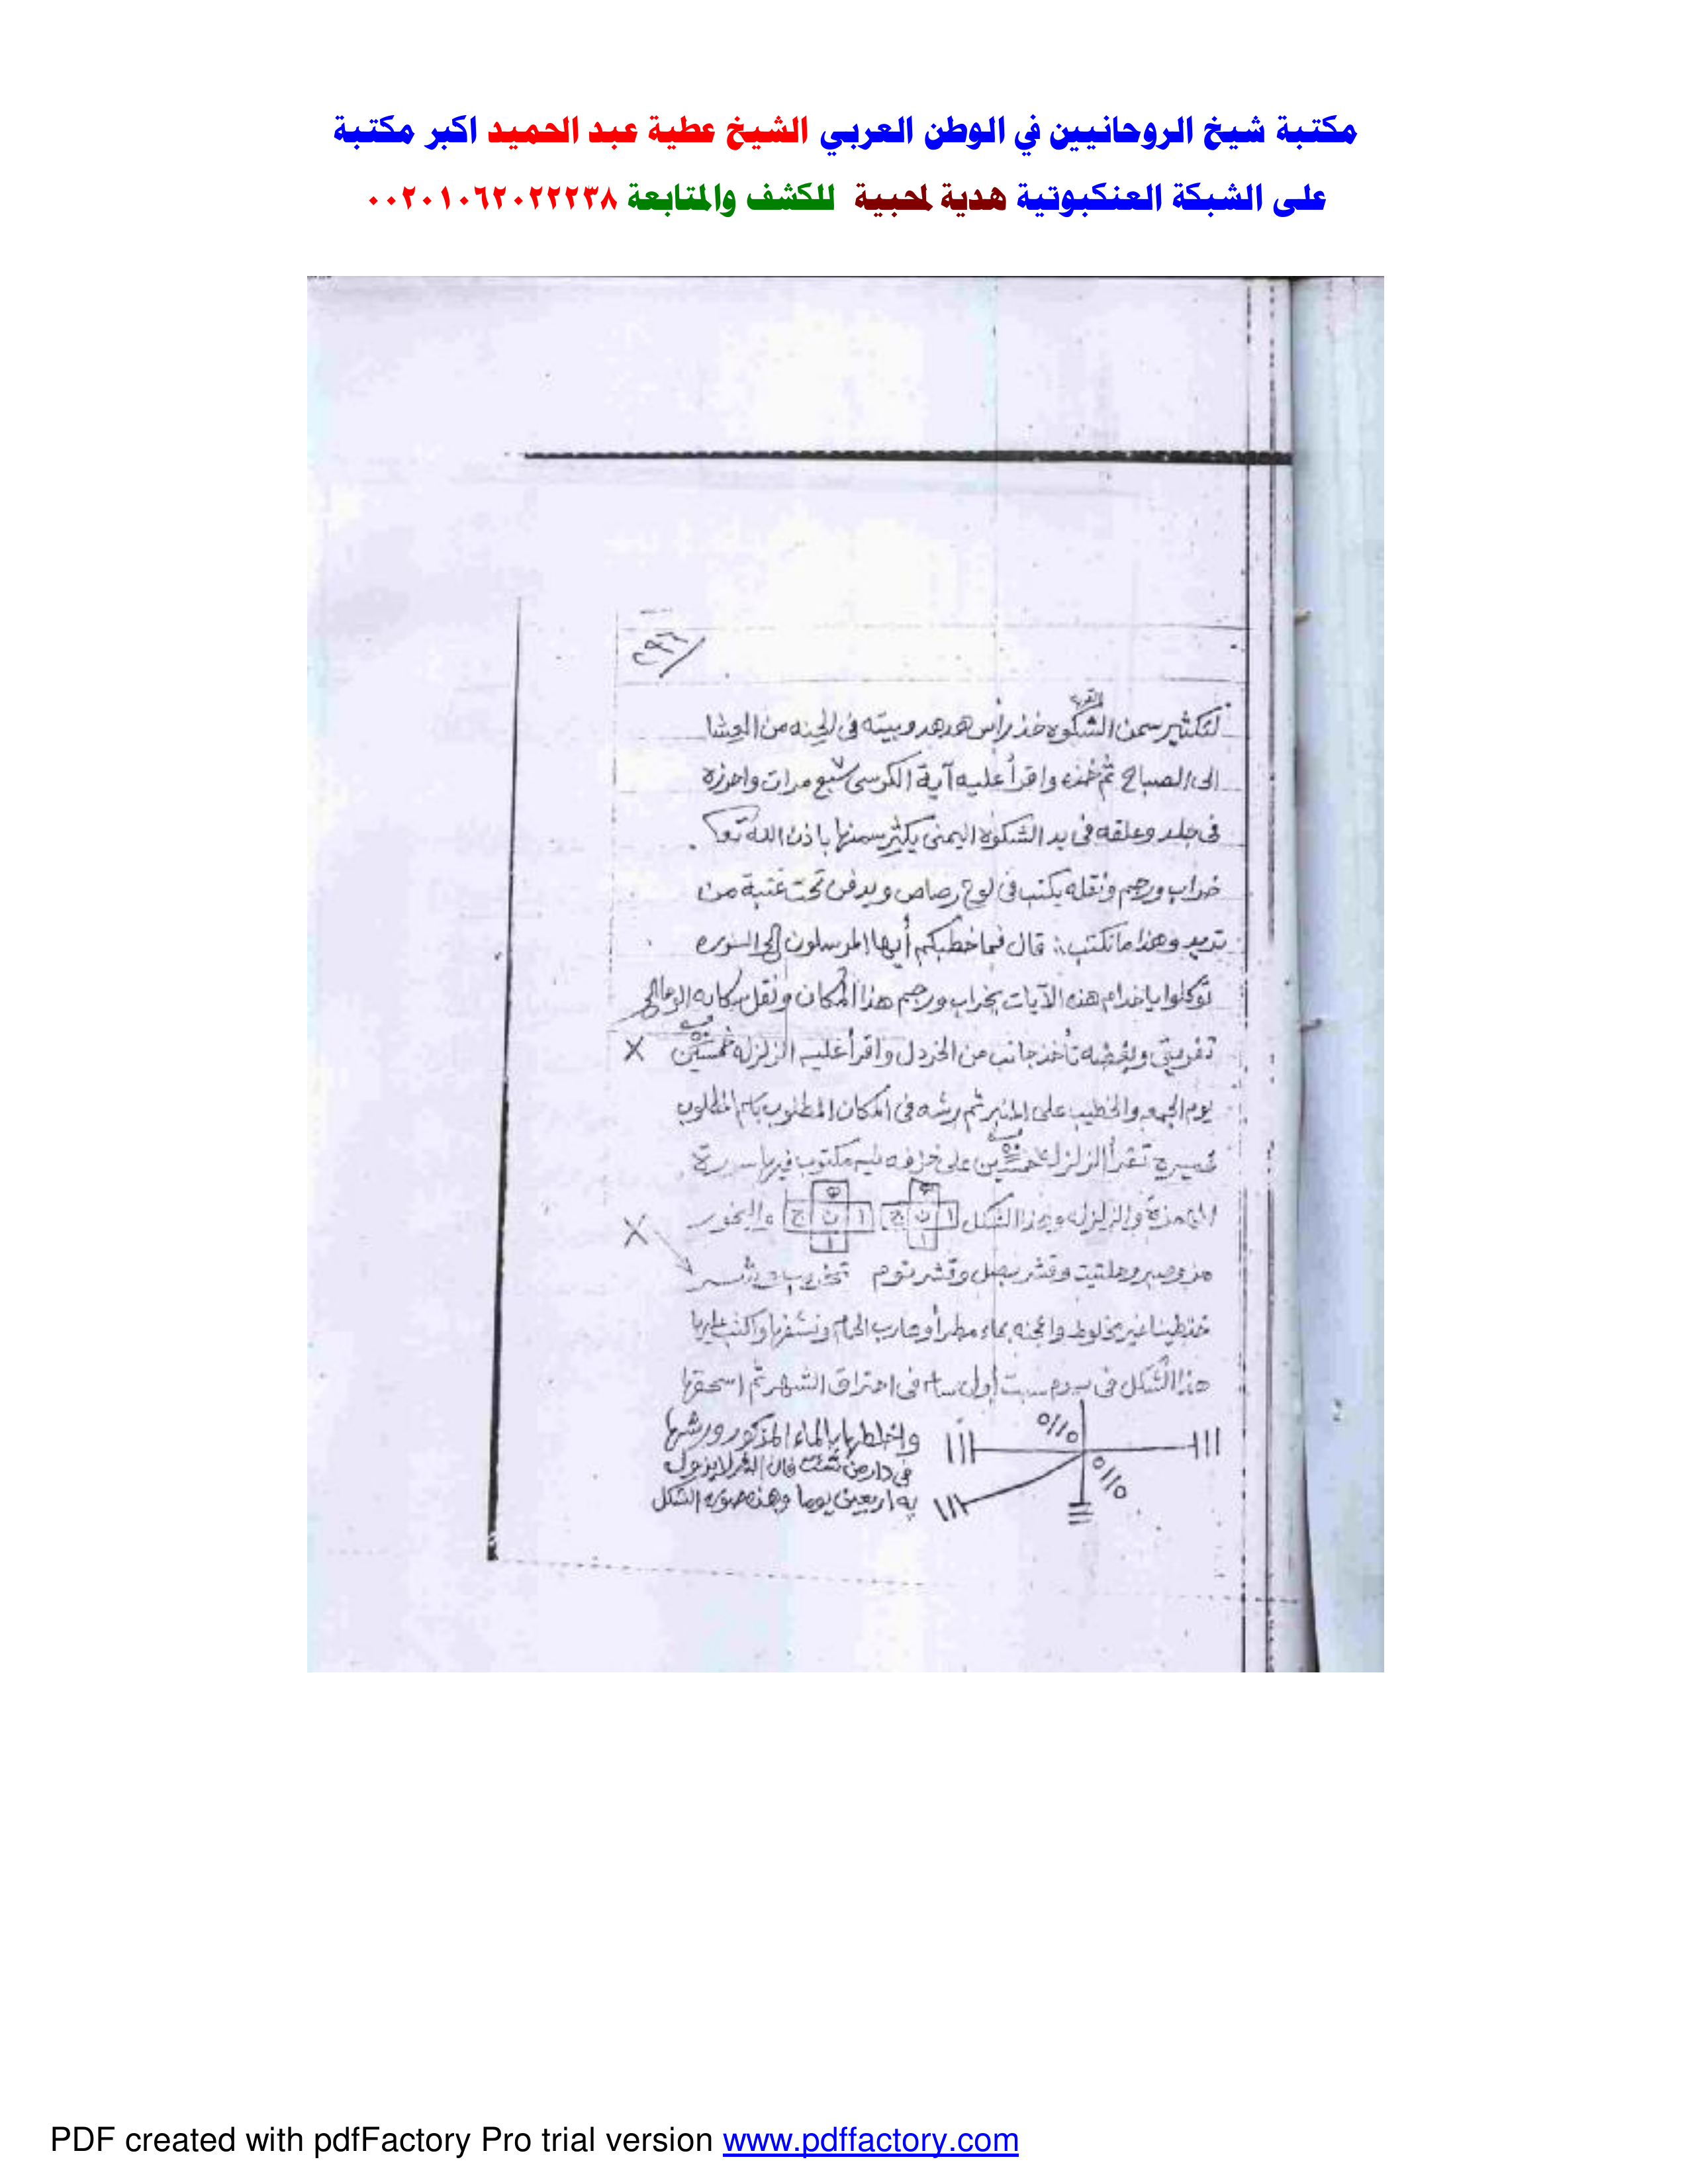 مكتبة شيخ الروحانيين في الوطن العربي الشيخ عطية عبد الحميد اكبر مكتبة
على الشبكة العنكبوتية هدية لمحبية للكشف والمتابعة ٠٠٢٠١٠٦٢٠٢٢٢٣٨
٢٩٦
لتكثير سمن الشكوه خذ رأس هدهد وبيته فى من العشا
الى الصباح ثم خذه واقرأ عليه آية الكرسى ٧ سبع مرات واحرزه
فى جلد وعلقه فى يد الشكوه اليمنى يكثر سمنها باذن الله
خراب ورجم ونقله يكتب فى لوح رصاص ويدفن تحت عتبة من
تريد وهذا ما تكتب قال فما خطبكم أيها المرسلون الى السوره
توكلوا يا خدام هذه الآيات بخراب ورجم هذا المكان ونقل
تفريق وبغضه تأخذ جانب من الخردل واقرأ عليه الزلزله خمسين
يوم الجمعه والخطيب على المنبر ثم رشه فى المكان المطلوب المطلوب
تقرأ الزلزله خمسين على مكتوب فيها سورة
والزلزله وبهذا الشكل ا ن ج ا ا ن ج ا والبخور
مر وصبر وحلتيت وقشر بصل وقشر ثوم
خذ طينا غير مخلوط واعجنه بماء مطر أو الحمام ونشفها واكتب عليها
هذا الشكل فى يوم سبت أول ساعه فى احتراق الشهر ثم اسحقها
واخلطها بالماء المذكور ورشها
فى دار من شئت فان الشر لا يزول
به اربعين يوما وهذه صورة الشكل
PDF created with pdfFactory Pro trial version www.pdffactory.com